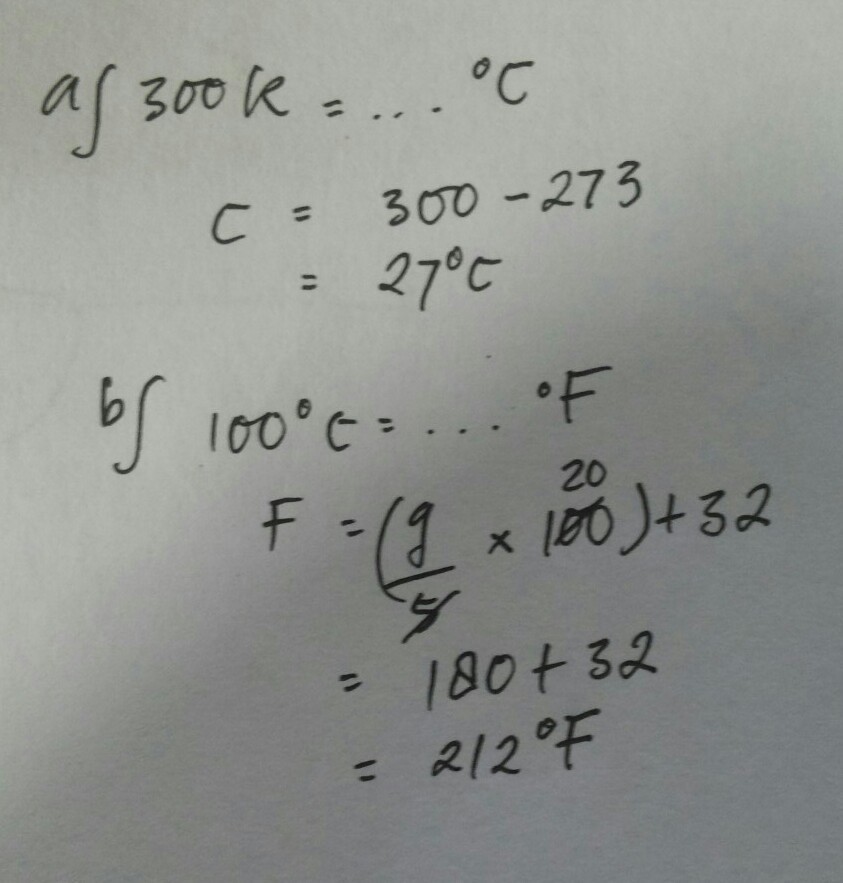 a) 300 K = ... °C
C = 300 - 273
= 27°C
b) 100°C = ... °F
20
F = (9/5 x 100) + 32
= 180 + 32
= 212°F